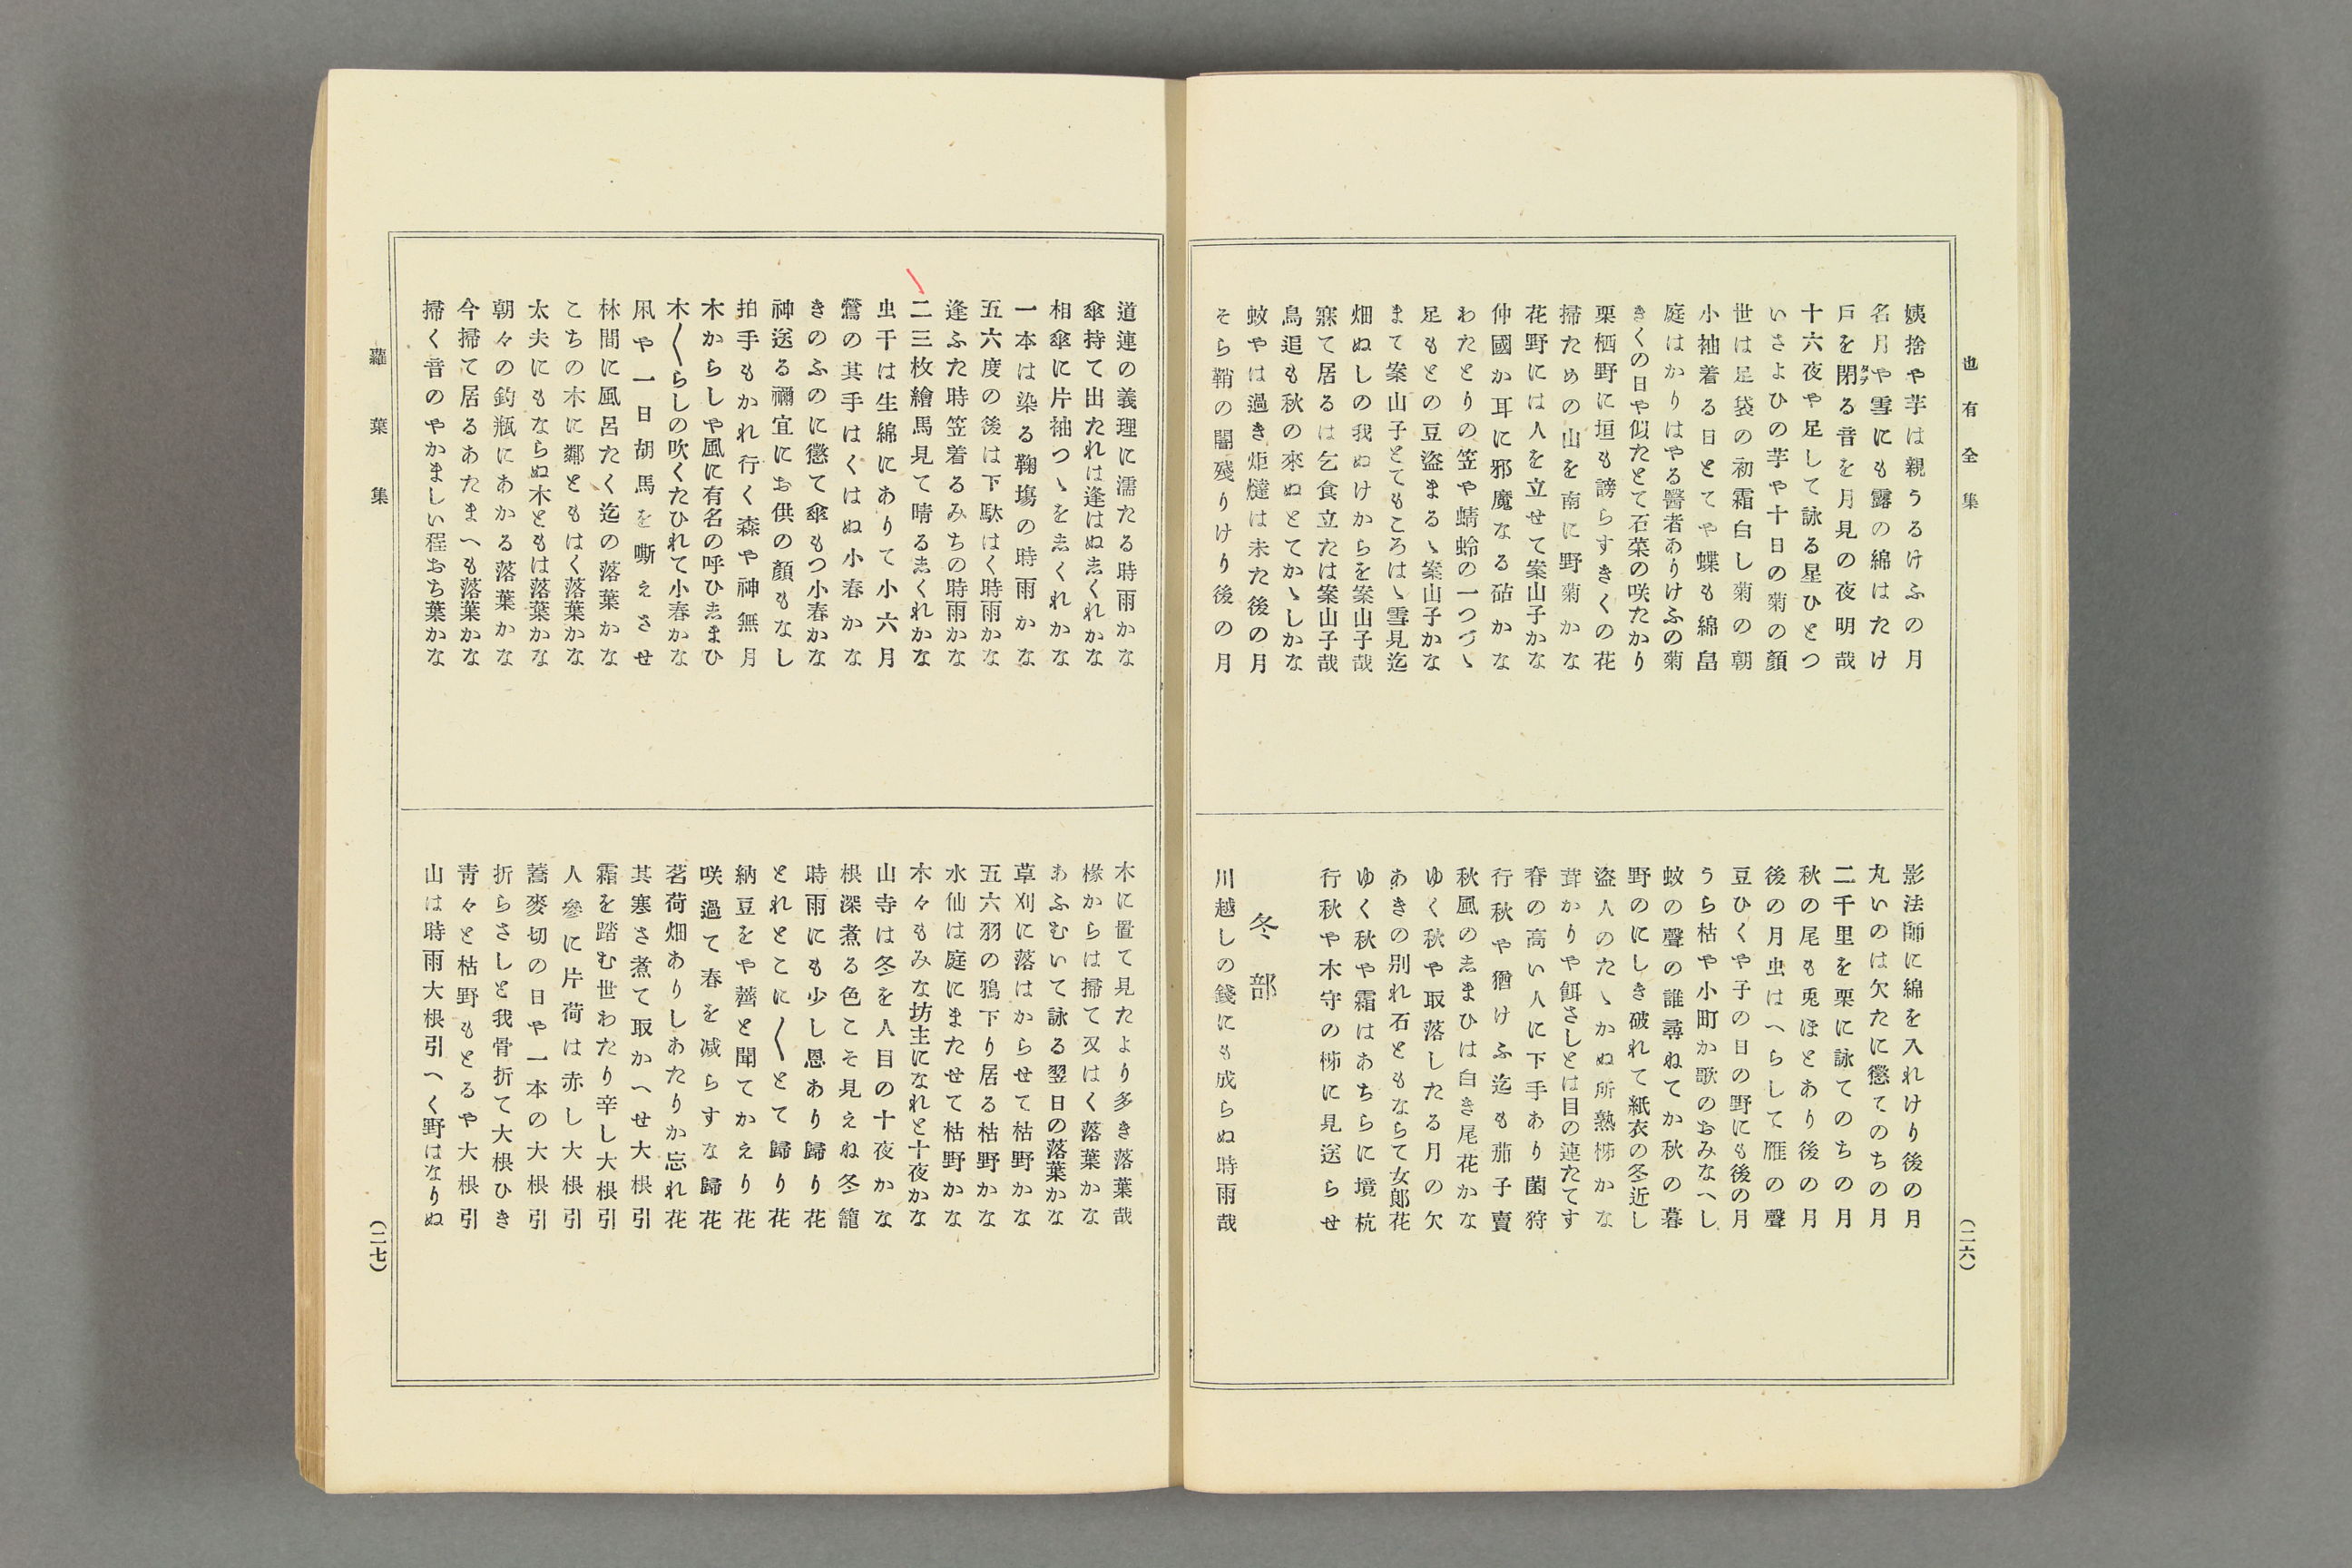 也有全集
(二六)
姨捨や芋は親うるけふの月
名月や雪にも露の綿はたけ
戸を閉る音を月見の夜明哉
十六夜や足して詠る星ひとつ
いさよひの芋や十日の菊の顔
世は足袋の初霜白し菊の朝
小袖着る日とてや蝶も綿畠
庭はかりはやる醫者ありけふの菊
きくの日や似たとて石菜の咲たかり
栗栖野に垣も謗らすきくの花
掃ための山を南に野菊かな
花野には人を立せて案山子かな
仲國か耳に邪魔なる砧かな
わたとりの笠や蜻蛉の一つづゝ
足もとの豆盗まるゝ案山子かな
まて案山子とてもころはゝ雪見迄
畑ぬしの我ぬけからを案山子哉
寐て居るは乞食立たは案山子哉
鳥追も秋の來ぬとてかゝしかな
蚊やは過き炬燵は未た後の月
そら鞘の闇殘りけり後の月
影法師に綿を入れけり後の月
丸いのは欠たに懲てのちの月
二千里を栗に詠てのちの月
秋の尾も兎ほとあり後の月
後の月虫はへらして雁の聲
豆ひくや子の日の野にも後の月
うら枯や小町か歌のおみなへし
蚊の聲の誰尋ねてか秋の暮
野のにしき破れて紙衣の冬近し
盗人のたゝかぬ所熟柹かな
茸かりや餌さしとは目の連たてす
脊の高い人に下手あり菌狩
行秋や猶けふ迄も茄子賣
秋風の志まひは白き尾花かな
ゆく秋や取落したる月の欠
あきの別れ石ともならて女郞花
ゆく秋や霜はあちらに境杭
行秋や木守の柹に見送らせ
冬部
川越しの錢にも成らぬ時雨哉
道連の義理に濡たる時雨かな
傘持て出たれは逢はぬ志くれかな
相傘に片袖つゝを志くれかな
一本は染る鞠塲の時雨かな
五六度の後は下駄はく時雨かな
逢ふた時笠着るみちの時雨かな
二三枚繪馬見て晴る志くれかな
虫干は生綿にありて小六月
鶯の其手はくはぬ小春かな
きのふのに懲て傘もつ小春かな
神送る禰宜にお供の顏もなし
拍手もかれ行く森や神無月
木からしや風に有名の呼ひ志まひ
木〱らしの吹くたひれて小春かな
凩や一日胡馬を嘶えさせ
林間に風呂たく迄の落葉かな
こちの木に鄰ともはく落葉かな
太夫にもならぬ木ともは落葉かな
朝々の釣瓶にあかる落葉かな
今掃て居るあたまへも落葉かな
掃く音のやかましい程おち葉かな
木に置て見たより多き落葉哉
椽からは掃て又はく落葉かな
あふむいて詠る翌日の落葉かな
草刈に落はからせて枯野かな
五六羽の鴉下り居る枯野かな
水仙は庭にまたせて枯野かな
木々もみな坊主になれと十夜かな
山寺は冬を人目の十夜かな
根深煮る色こそ見えね冬籠
時雨にも少し恩あり歸り花
とれとこに〱とて歸り花
納豆をや薺と聞てかえり花
咲過て春を減らすな歸花
茗荷畑ありしあたりか忘れ花
其寒さ煮て取かへせ大根引
霜を踏む世わたり辛し大根引
人參に片荷は赤し大根引
蕎麥切の日や一本の大根引
折らさしと我骨折て大根ひき
靑々と枯野もとるや大根引
山は時雨大根引へく野はなりぬ
蘿葉集
(二七)